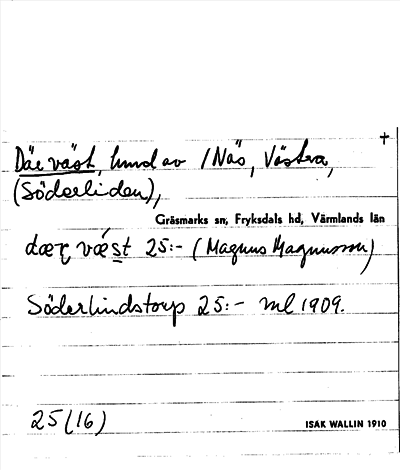 †
Där väst, hmd av /Näs, Västra,
(Söderliden),
Gräsmarks sn, Fryksdals hd, Värmlands län
dæɽ vǽst 25:- (Magnus Magnusson)
Söderlindstorp 25:- ml 1909.
25(16)
ISAK WALLIN 1910